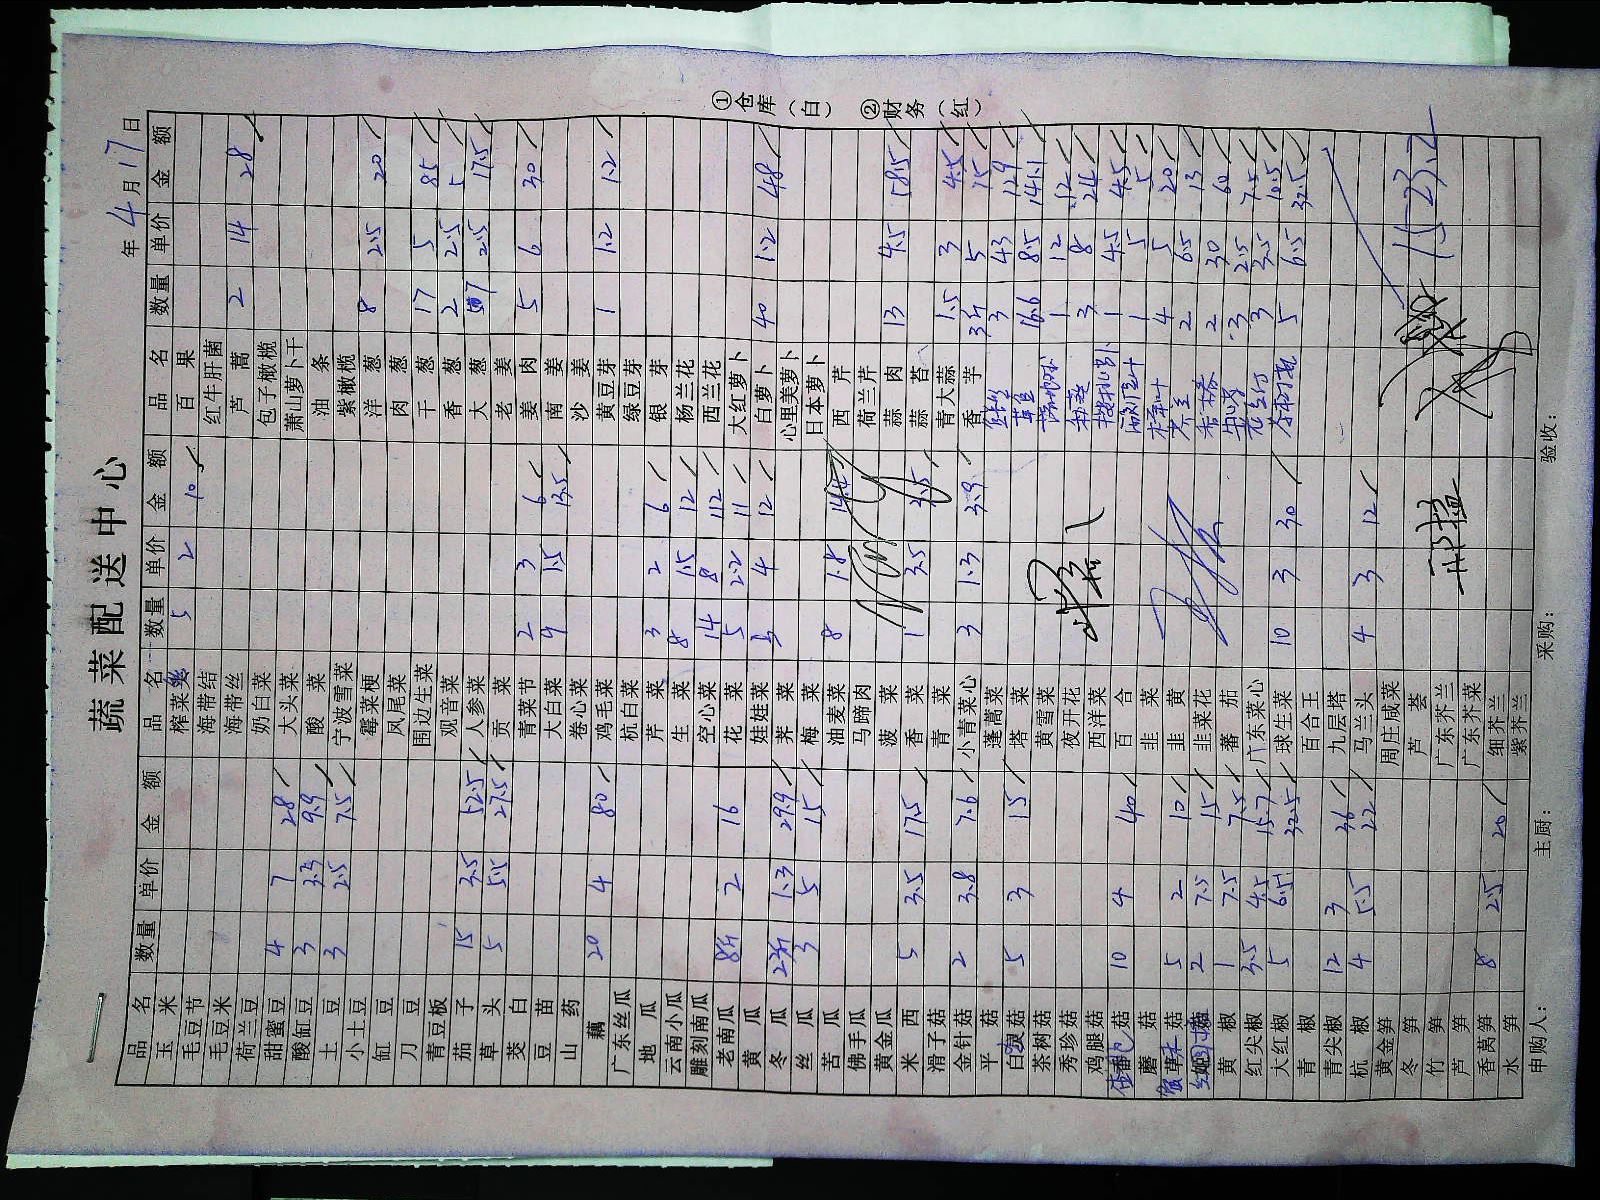 蔬菜配送中心
年 4 月 17 日
品名 数量 单价 金额 品名 数量 单价 金额 品名 数量 单价 金额
玉米 榨菜丝 5 2 10 百果
毛豆节 海带结 红牛肝菌
毛豆米 海带丝 芦蒿 2 14 28
荷兰豆 奶白菜 包子橄榄
甜蜜豆 4 7 28 大头菜 萧山萝卜干
酸豇豆 3 3.3 9.9 酸菜 油条
土豆 3 2.5 7.5 宁波雪菜 紫橄榄
小土豆 霉菜梗 洋葱 8 2.5 20
豇豆 凤尾菜 肉葱
刀豆 围边生菜 干葱 17 5 85
青豆板 观音菜 香葱 2 2.5 5
茄子 15 3.5 52.5 人参菜 大葱 7 2.5 17.5
草头 5 5.5 27.5 贡菜 老姜
茭白 青菜节 2 3 6 姜肉 5 6 30
豆苗 大白菜 9 1.5 13.5 南姜
山药 卷心菜 沙姜
藕 20 4 80 鸡毛菜 黄豆芽 1 1.2 1.2
广东丝瓜 杭白菜 绿豆芽
地瓜 芹菜 3 2 6 银芽
云南小瓜 生菜 8 1.5 12 杨兰花
雕刻南瓜 空心菜 14 8 112 西兰花
老南瓜 8斤 2 16 花菜 5 2.2 11 大红萝卜
黄瓜 娃娃菜 3 4 12 白萝卜 40 1.2 48
冬瓜 23斤 1.3 29.9 荠菜 心里美萝卜
丝瓜 3 5 15 梅菜 日本萝卜
苦瓜 油麦菜 8 1.8 14.4 西芹
佛手瓜 马蹄肉 荷兰芹
黄金瓜 菠菜 蒜肉 13 4.5 58.5
米西 5 3.5 17.5 香菜 1 3.5 3.5 蒜苔
滑子菇 青菜 青大蒜 1.5 3 4.5
金针菇 2 3.8 7.6 小青菜心 3 1.3 3.9 香芋 3斤 5 15
平菇 蓬蒿菜 3 43 129
白灵菇 5 3 15 塔菜 草鱼 16.6 8.5 141.1
茶树菇 黄雪菜 1 12 12
秀珍菇 夜开花 3 8 24
鸡腿菇 西洋菜 1 4.5 4.5
香菇 10 4 40 百合 1 5 5
蘑菇 韭菜 4 5 20
草菇 5 2 10 韭黄 2 6.5 13
姬菇 2 7.5 15 韭菜花 2 30 60
黄椒 1 7.5 7.5 番茄 3 2.5 7.5
红尖椒 3.5 4.5 15.7 广东菜心 3 3.5 10.5
大红椒 5 6.5 32.5 球生菜 10 3 30 5 6.5 32.5
青椒 百合王
青尖椒 12 3 36 九层塔
杭椒 4 5.5 22 马兰头 4 3 12
黄金笋 周庄咸菜
冬笋 芦荟 1523.2
竹笋 广东芥兰
芦笋 广东芥菜
香莴笋 8 2.5 20 细芥兰
水笋 紫芥兰
申购人： 主厨： 采购： 验收：
①仓库（白） ②财务（红）